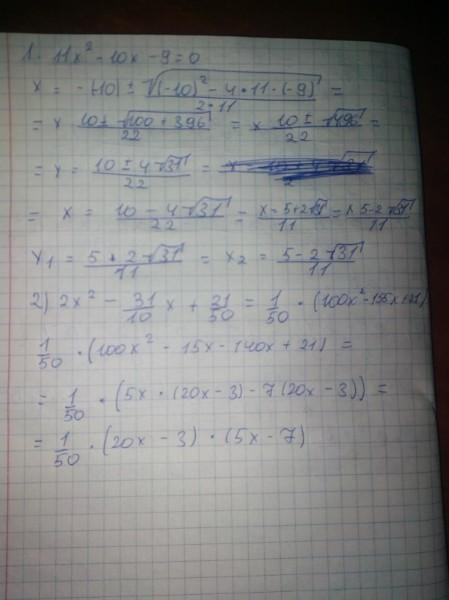 1. 11x² - 10x - 9 = 0
x = -(-10) ± √(-10)² - 4 · 11 · (-9) / 2 · 11 =
= x 10 ± √100 + 396 / 22 = x 10 ± √496 / 22 =
= x = 10 ± 4√31 / 22 =
= x = 10 - 4√31 / 22 = x = 5 + 2√31 / 11 = x 5 - 2√31 / 11
x₁ = 5 + 2√31 / 11 = x₂ = 5 - 2√31 / 11
2) 2x² - 31/10 x + 21/50 = 1/50 · (100x² - 155x + 21)
1/50 · (100x² - 15x - 140x + 21) =
= 1/50 · (5x · (20x - 3) - 7(20x - 3)) =
= 1/50 · (20x - 3) · (5x - 7)